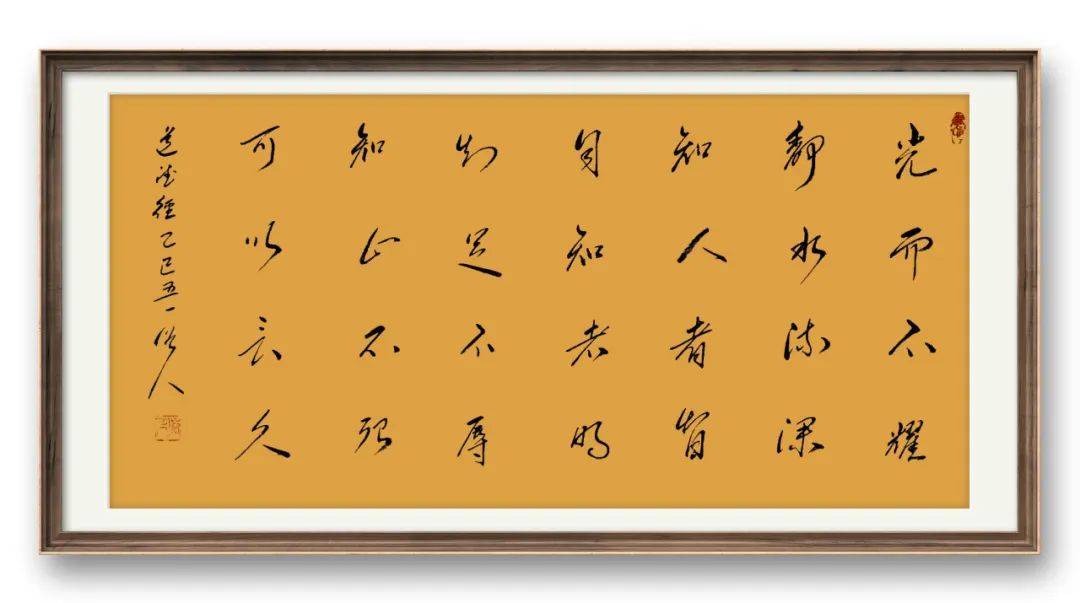 光而不耀
静水流深
知人者智
自知者明
知足不辱
知止不殆
可以长久
道德經乙巳五一人